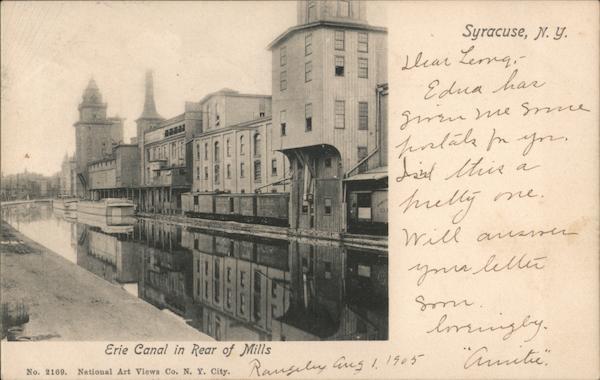 Syracuse, N. Y.
Dear Leong,-
Edna has
given me some
postals for you.
Isn't this a
pretty one.
Will answer
your letter
soon.
lovingly.
"Auntie".
Erie Canal in Rear of Mills
No. 2169. National Art Views Co. N. Y. City.
Rangeley Aug 1, 1905